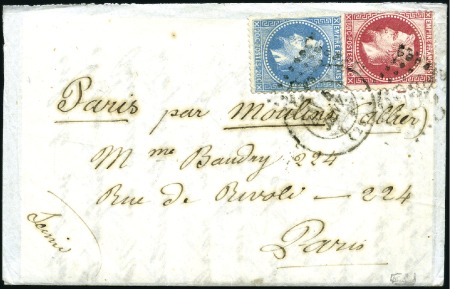 EMPIRE FRANC
Paris par Moulins (allier)
Mme Baudry 224
Rue de Rivoli — 224
Paris